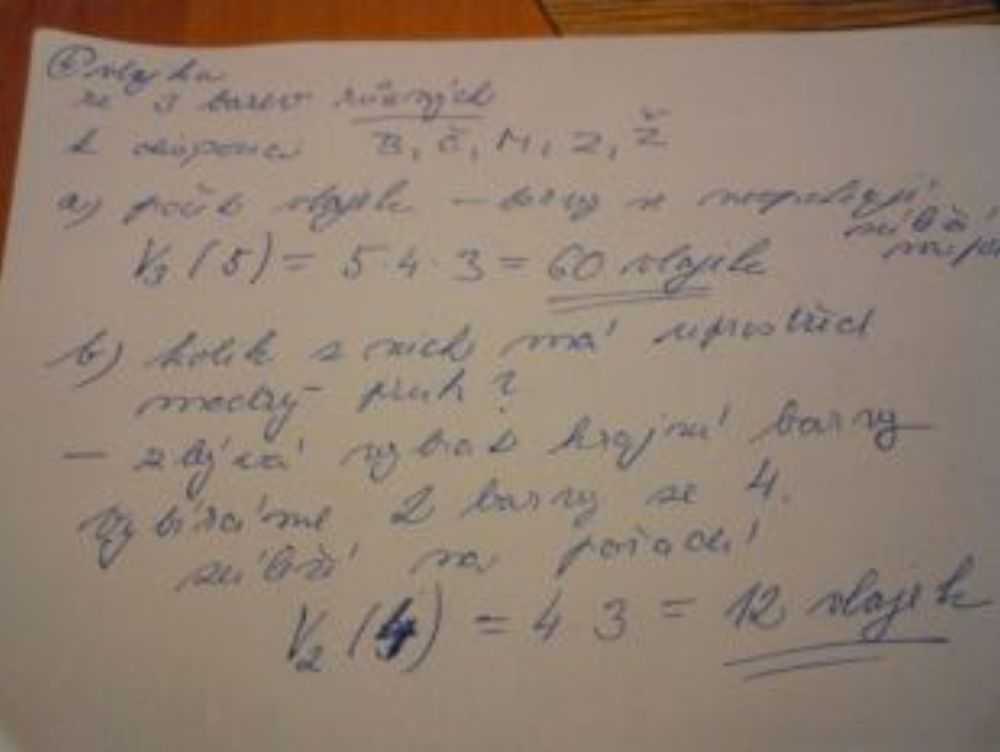 vlajka
ze 3 barev různých
k dispozici B, Č, M, Z, Ž
a) počet vlajek – barvy se neopakují
záleží
na
V₃ (5) = 5·4·3 = 60 vlajek
b) kolik z nich má uprostřed
modrý pruh ?
– zbývá vybrat krajní barvy
vybíráme 2 barvy ze 4.
záleží na pořadí
V₂ (4) = 4 3 = 12 vlajek